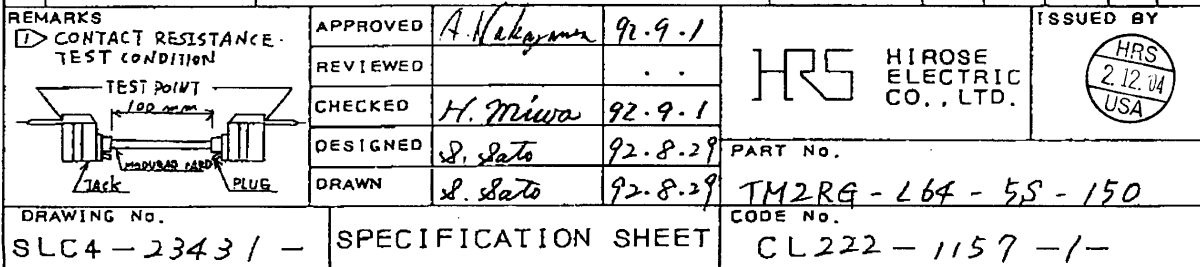 REMARKS
1 CONTACT RESISTANCE.
TEST CONDITION
TEST POINT
100 mm
MODURAR CARD
JACK
PLUG
APPROVED A. Nakayama 92.9.1
REVIEWED . .
CHECKED H. Miwa 92.9.1
DESIGNED S. Sato 92.8.29
DRAWN S. Sato 92.8.29
HRS
HIROSE
ELECTRIC
CO., LTD.
ISSUED BY
HRS
2.12.04
USA
PART No.
TM2RG-L64-5S-150
DRAWING No.
SLC4-23431-
SPECIFICATION SHEET
CODE No.
CL222-1157-1-